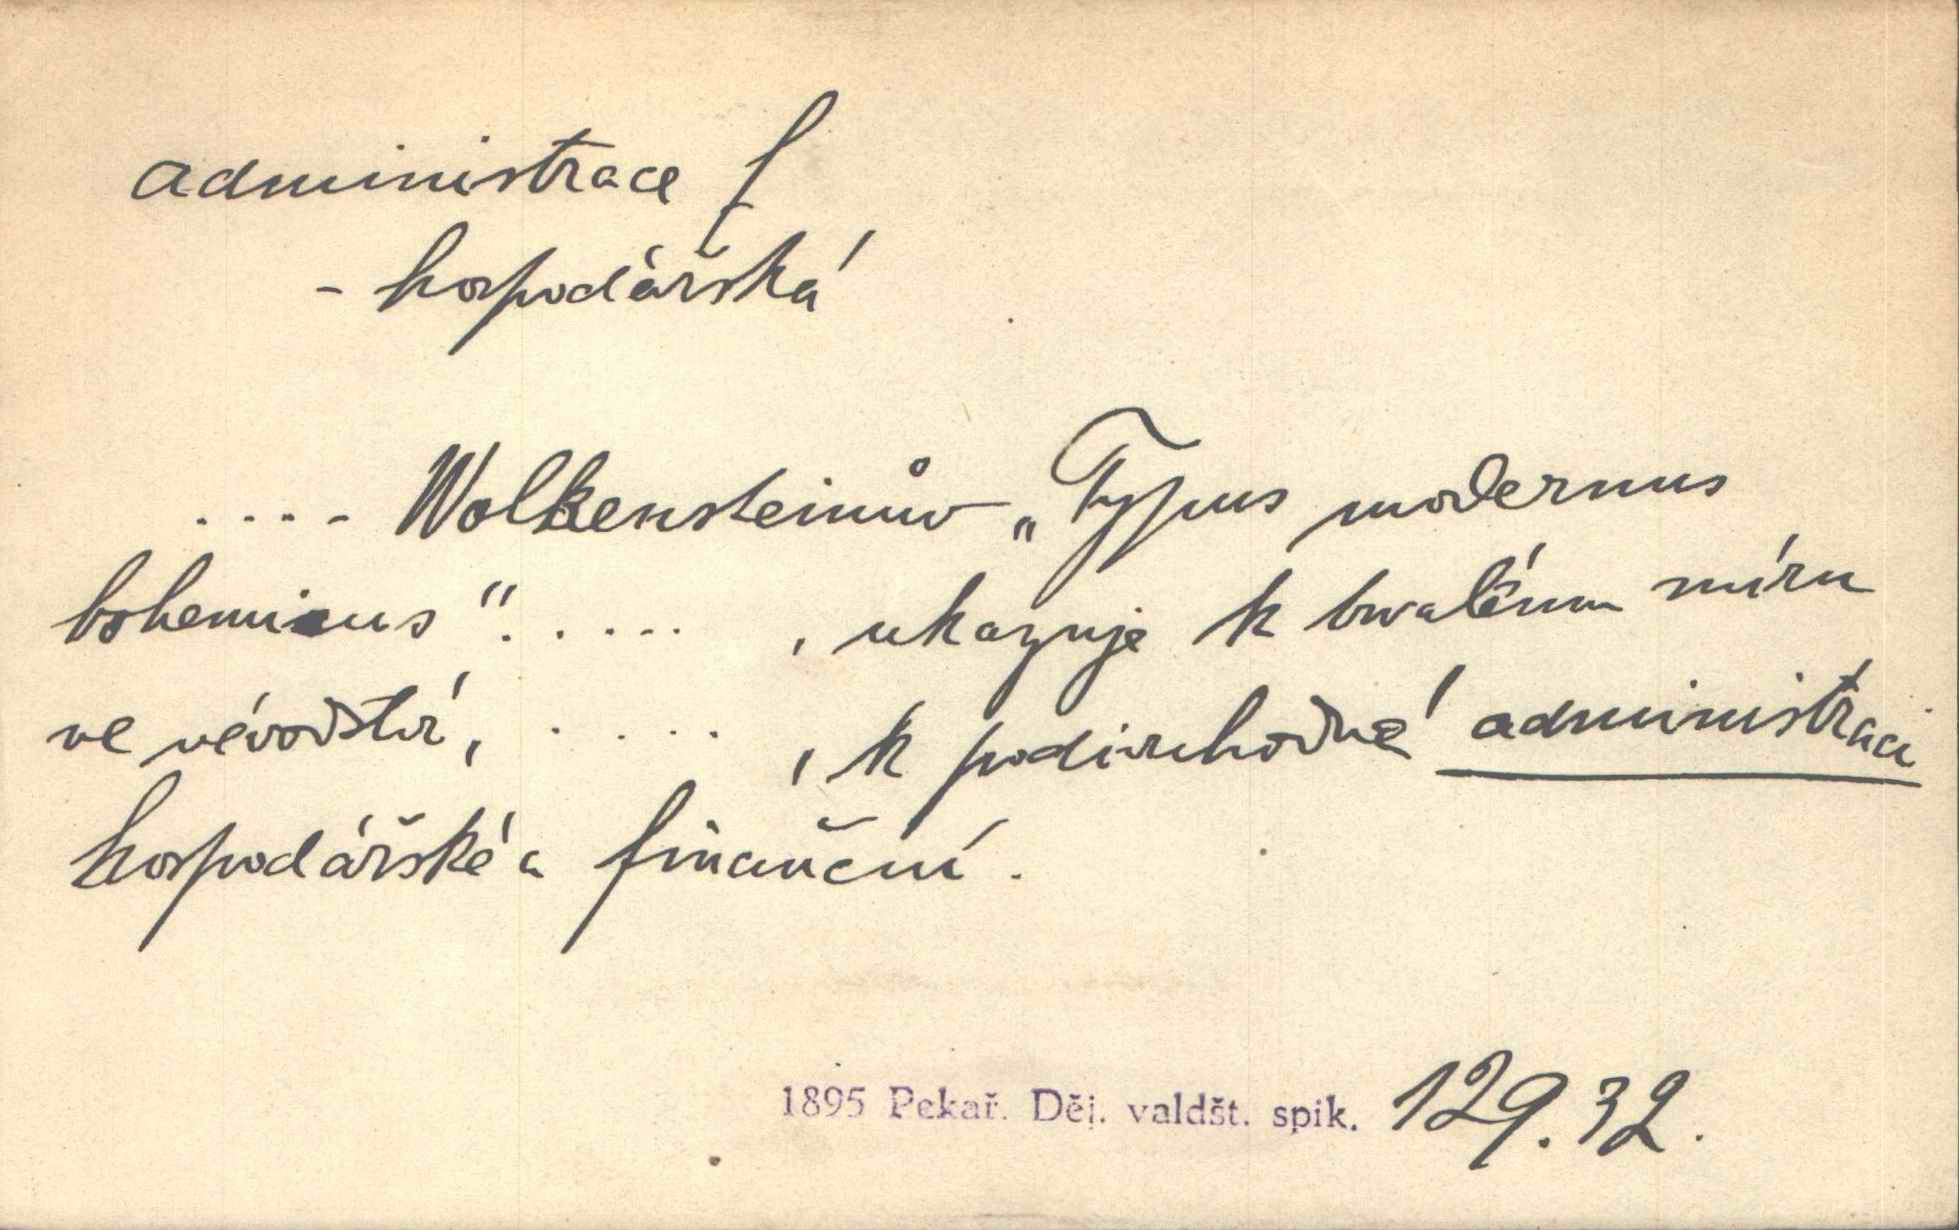 administrace f
- hospodářská
.... Wolkensteinův „Typus modernus
bohemicus“. ....., ukazuje k trvalému míru
ve vévodství, ....., k podivuhodné administraci
hospodářské a finanční.
1895 Pekař. Děj. valdšt. spik. 129.32.